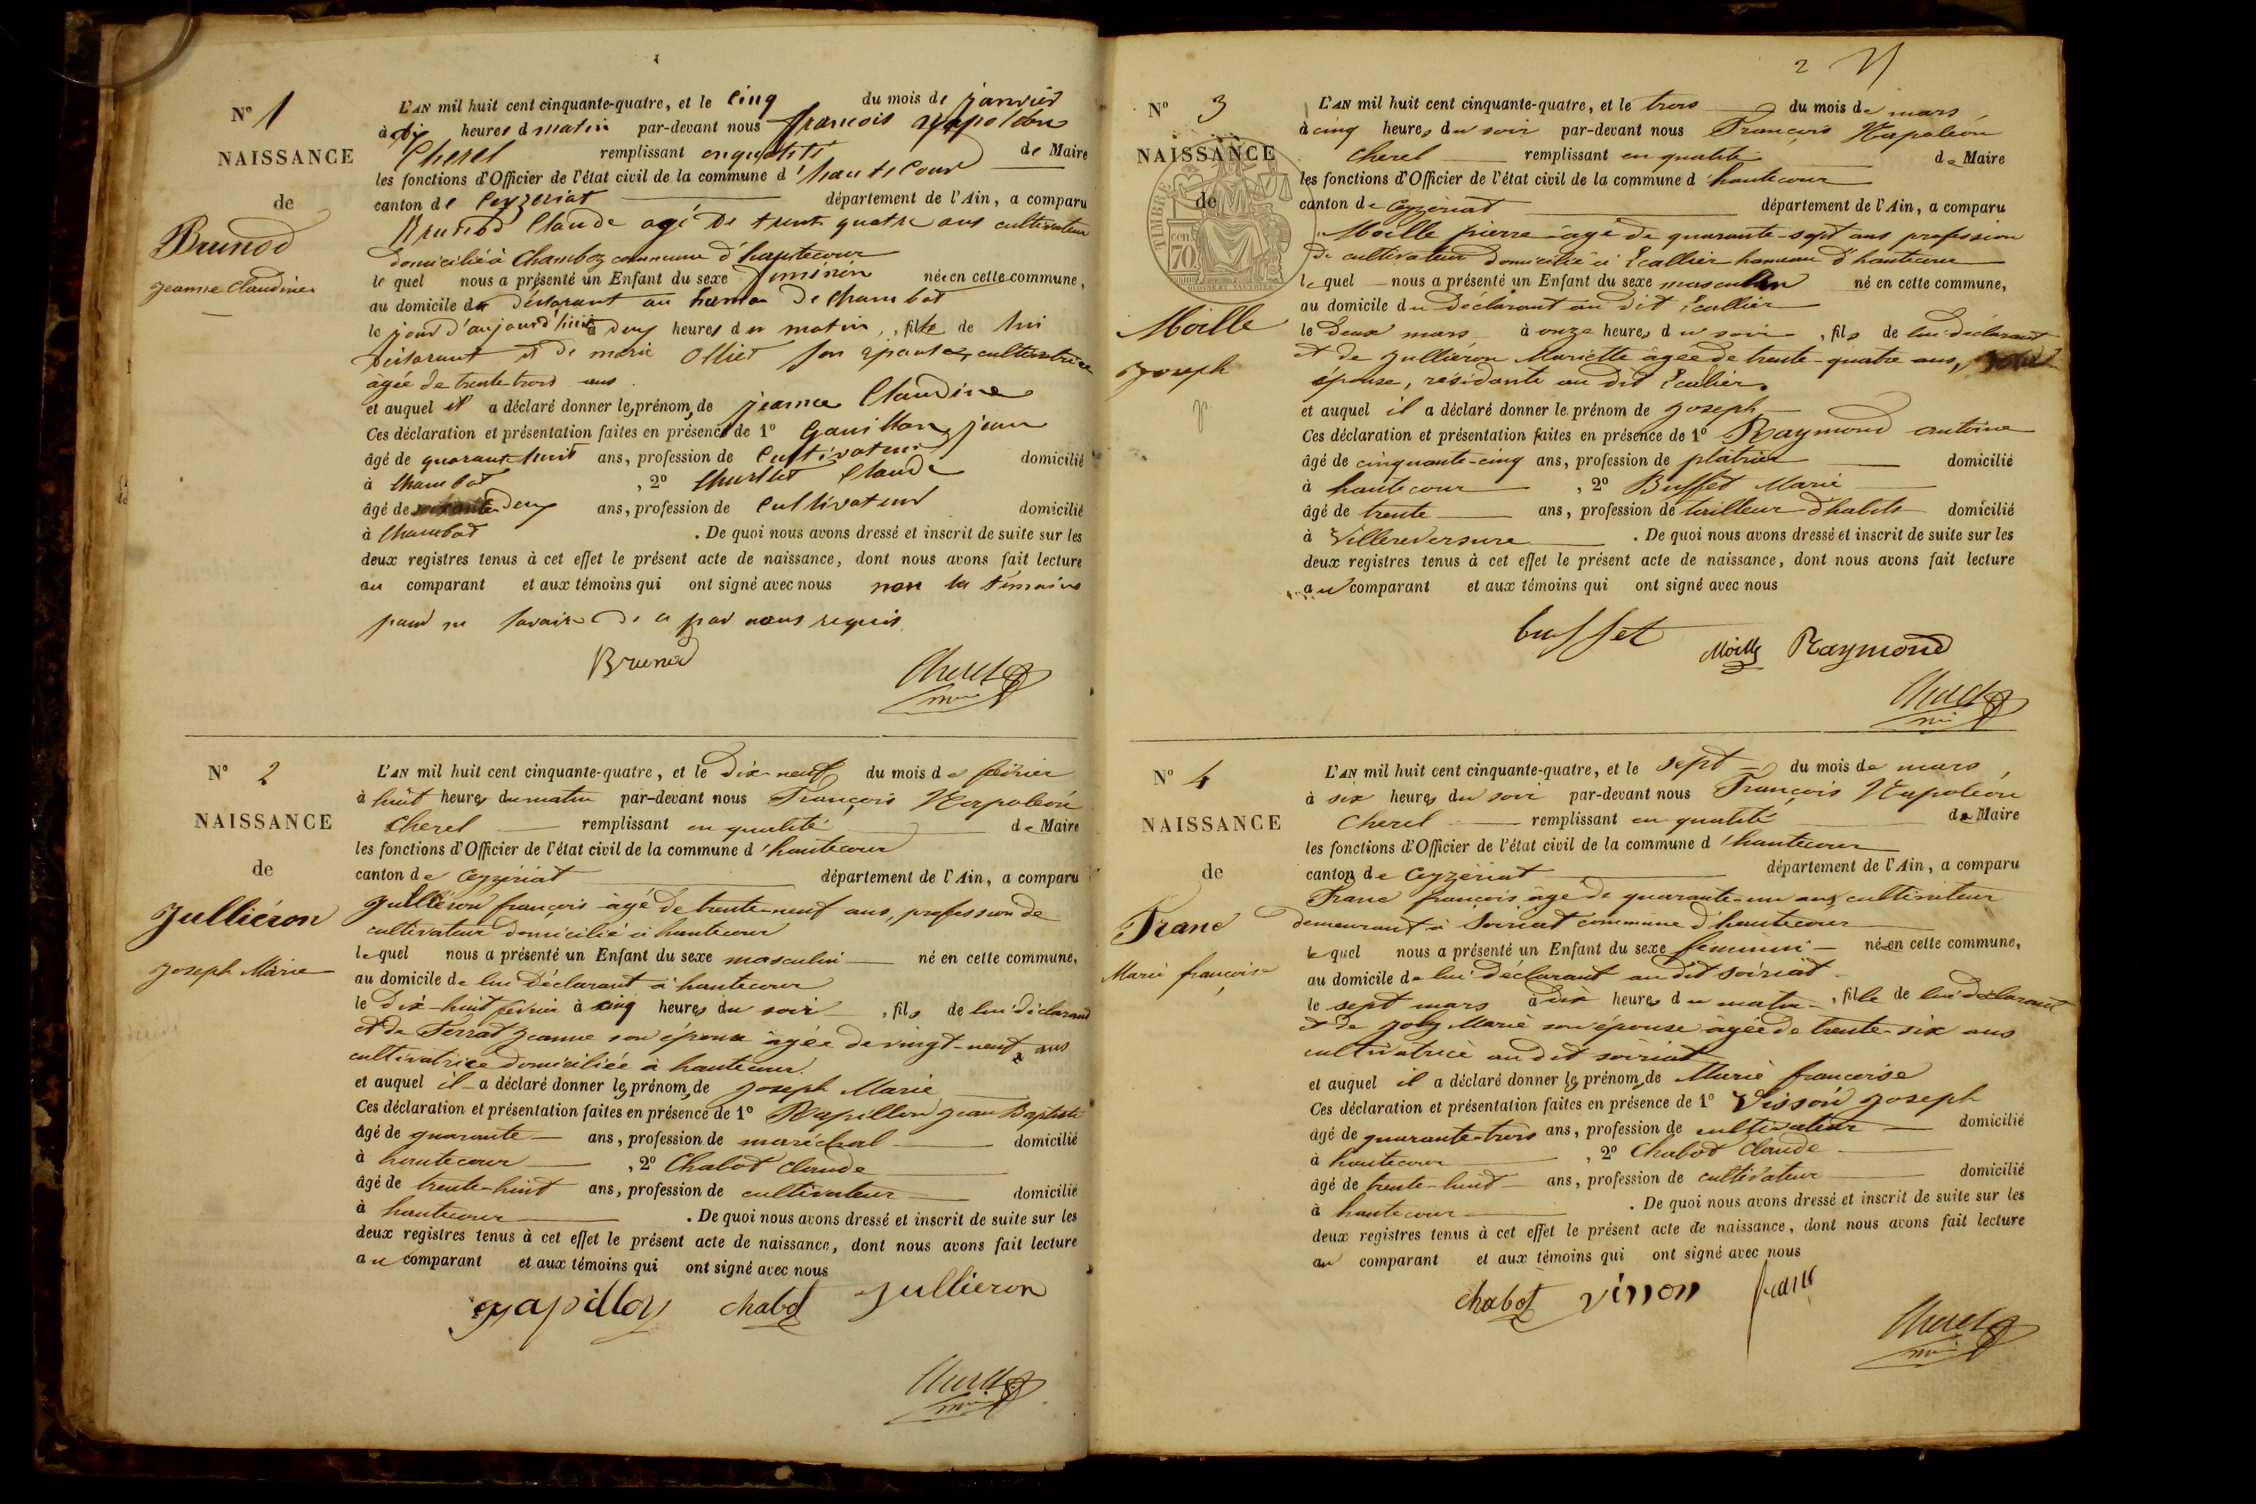 Nº 1
NAISSANCE
de
Brunod
jeanne Claudine
L'AN mil huit cent cinquante-quatre, et le cinq du mois de janvier
à dix heures d matin par-devant nous françois napoléon
Cherel remplissant en qualité de Maire
les fonctions d'Officier de l'état civil de la commune d'hautecour
canton de Ceyzeriat département de l'Ain, a comparu
Brunod Claude agé de trente quatre ans cultivateur
domicilié à Chamboz commune d'hautecour
le quel nous a présenté un Enfant du sexe féminin née en cette commune,
au domicile du déclarant au hameau de Chambod
le jour d'aujourd'hui à deux heures du matin, fille de lui
déclarant et de marie Olliet son épouse, cultivatrice
âgée de trente trois ans
et auquel il a déclaré donner les prénoms de jeanne Claudine
Ces déclaration et présentation faites en présence de 1º jean
âgé de quarante huit ans, profession de Cultivateur domicilié
à Chambod, 2º Claude
âgé de deux ans, profession de Cultivateur domicilié
à Chambod. De quoi nous avons dressé et inscrit de suite sur les
deux registres tenus à cet effet le présent acte de naissance, dont nous avons fait lecture
au comparant et aux témoins qui ont signé avec nous non les témoins
pour ne savoir de ce par nous requis
Brunod
Cherel
Nº 2
NAISSANCE
de
Julliéron
Joseph Marie
L'AN mil huit cent cinquante-quatre, et le dix-neuf du mois de février
à huit heures du matin par-devant nous François Napoléon
Cherel remplissant en qualité de Maire
les fonctions d'Officier de l'état civil de la commune d'hautecour
canton de Ceyzeriat département de l'Ain, a comparu
Julliéron françois âgé de trente-neuf ans, profession de
cultivateur domicilié à hautecour
lequel nous a présenté un Enfant du sexe masculin né en cette commune,
au domicile de lui déclarant à hautecour
le dix-huit février à cinq heures du soir, fils de lui déclarant
et de Ferrat Jeanne son épouse âgée de vingt-neuf ans
cultivatrice domiciliée à hautecour
et auquel il a déclaré donner les prénoms de Joseph Marie
Ces déclaration et présentation faites en présence de 1º Rapillon Jean Baptiste
âgé de quarante ans, profession de maréchal domicilié
à hautecour, 2º Chabot Claude
âgé de trente-huit ans, profession de cultivateur domicilié
à hautecour. De quoi nous avons dressé et inscrit de suite sur les
deux registres tenus à cet effet le présent acte de naissance, dont nous avons fait lecture
au comparant et aux témoins qui ont signé avec nous
chabot Jullieron
Cherel
2
Nº 3
NAISSANCE
de
TIMBRE
70
Moille
Joseph
L'AN mil huit cent cinquante-quatre, et le trois du mois de mars
à cinq heures du soir par-devant nous François Napoléon
Cherel remplissant en qualité de Maire
les fonctions d'Officier de l'état civil de la commune d'hautecour
canton de Ceyzériat département de l'Ain, a comparu
Moille pierre âgé de quarante-sept ans profession
de cultivateur domicilié à Ecallier hameau d'hautecour
lequel nous a présenté un Enfant du sexe masculin né en cette commune,
au domicile du déclarant au dit Ecallier
le deux mars à onze heures du soir, fils de lui déclarant
et de Julliéron Mariette âgée de trente-quatre ans,
épouse, résidante au dit Ecallier
et auquel il a déclaré donner le prénom de Joseph
Ces déclaration et présentation faites en présence de 1º Raymond antoine
âgé de cinquante-cinq ans, profession de plâtrier domicilié
à hautecour, 2º Buffet Marie
âgé de trente ans, profession de tailleur d'habits domicilié
à Villereversure. De quoi nous avons dressé et inscrit de suite sur les
deux registres tenus à cet effet le présent acte de naissance, dont nous avons fait lecture
au comparant et aux témoins qui ont signé avec nous
buffet Moille Raymond
Cherel
Nº 4
NAISSANCE
de
Franc
Marie françoise
L'AN mil huit cent cinquante-quatre, et le sept du mois de mars,
à six heures du soir par-devant nous François Napoléon
Cherel remplissant en qualité de Maire
les fonctions d'Officier de l'état civil de la commune d'hautecour
canton de Ceyzériat département de l'Ain, a comparu
Franc françois âgé de quarante-un ans, cultivateur
demeurant à Soiriat commune d'hautecour
le quel nous a présenté un Enfant du sexe féminin née en cette commune,
au domicile de lui déclarant au dit soiriat
le sept mars à dix heures du matin, fille de lui déclarant
et de Joly Marie son épouse âgée de trente-six ans
cultivatrice au dit soiriat
et auquel il a déclaré donner les prénoms de Marie françoise
Ces déclaration et présentation faites en présence de 1º Visson Joseph
âgé de quarante-trois ans, profession de cultivateur domicilié
à hautecour, 2º Chabot Claude
âgé de trente-huit ans, profession de cultivateur domicilié
à hautecour. De quoi nous avons dressé et inscrit de suite sur les
deux registres tenus à cet effet le présent acte de naissance, dont nous avons fait lecture
au comparant et aux témoins qui ont signé avec nous
chabot visson franc
Cherel